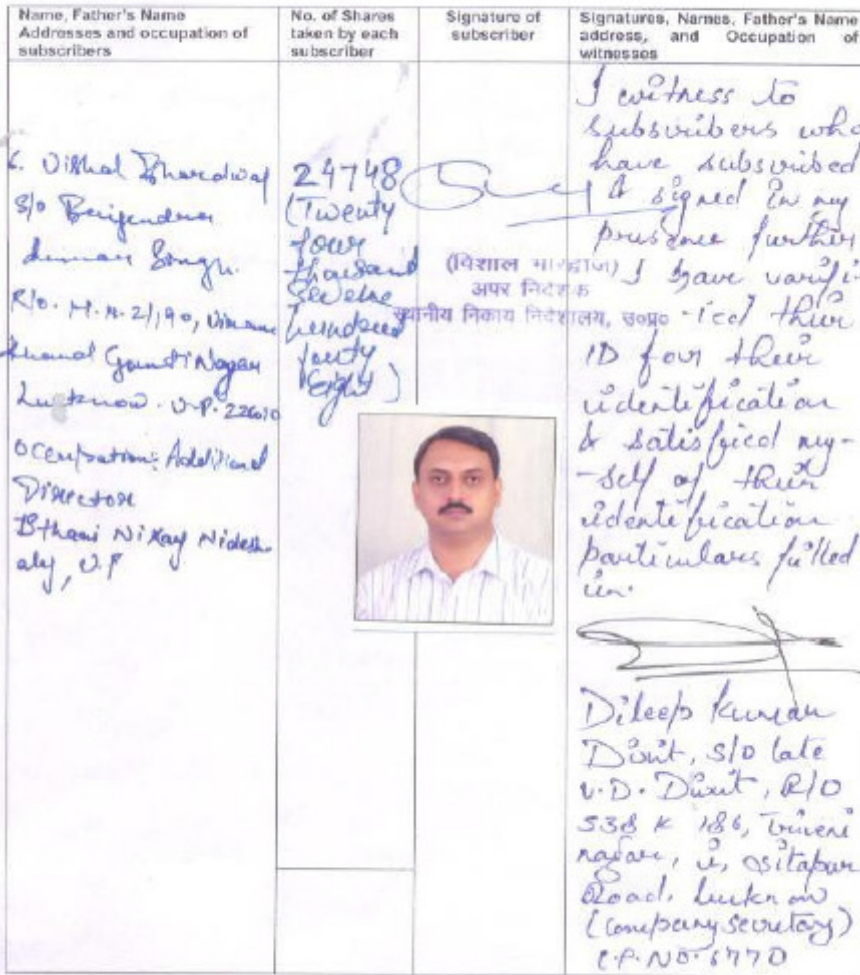 Name, Father's Name
Addresses and occupation of
subscribers
No. of Shares
taken by each
subscriber
Signature of
subscriber
Signatures, Names, Father's Name
address, and Occupation of
witnesses
6. Vishal Bhardwaj
S/o Brijendra
Kumar Singh.
R/o. H.N. 2/190, Vinamra
Khand Gomti Nagar
Lucknow. U.P. 226010
Occupation: Additional
Director
Sthani Nikay Nidesh
aly, U.P
24748
(Twenty
four
thousand
Seven
hundred
fourty
Eight)
(विशाल भारद्वाज)
अपर निदेशक
स्थानीय निकाय निदेशालय, उ०प्र०
I witness to
subscribers who
have subscribed
& signed in my
presence further
I have varifi-
-ied their
ID for their
identification
& satisfied my-
-self of their
identification
particulars filled
in.
Dileep Kumar
Dixit, S/o late
V.D. Dixit, R/O
538 K 186, Triveni
nagar, Sitapur
Road, Lucknow
(Company Secretary)
C.P. NO. 6770